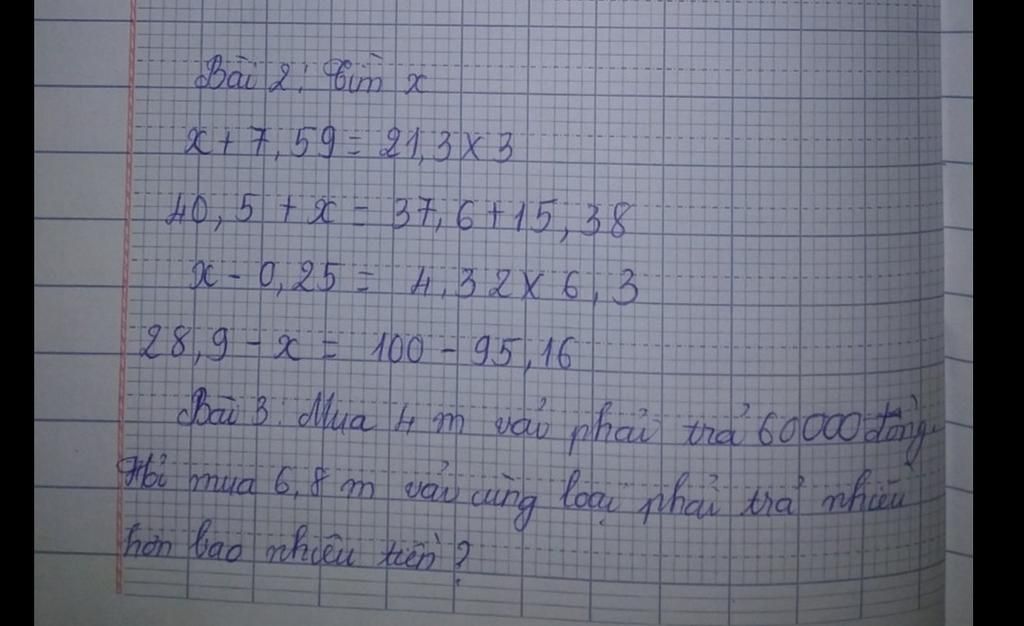 Bài 2: Tìm x
x + 7,59 = 21,3 x 3
40,5 + x = 37,6 + 15,38
x - 0,25 = 4,32 x 6,3
28,9 - x = 100 - 95,16
Bài 3: Mua 4 m vải phải trả 60000 đồng.
Hỏi mua 6,8 m vải cùng loại phải trả nhiều
hơn bao nhiêu tiền?